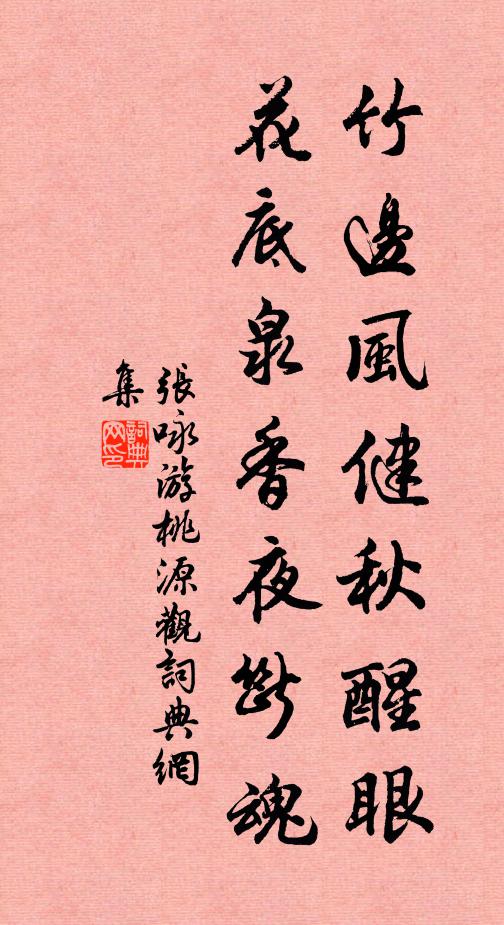 竹邊風健秋醒眼
花底泉香夜斷魂
張咏游桃源觀詞典網
集
詞典网印